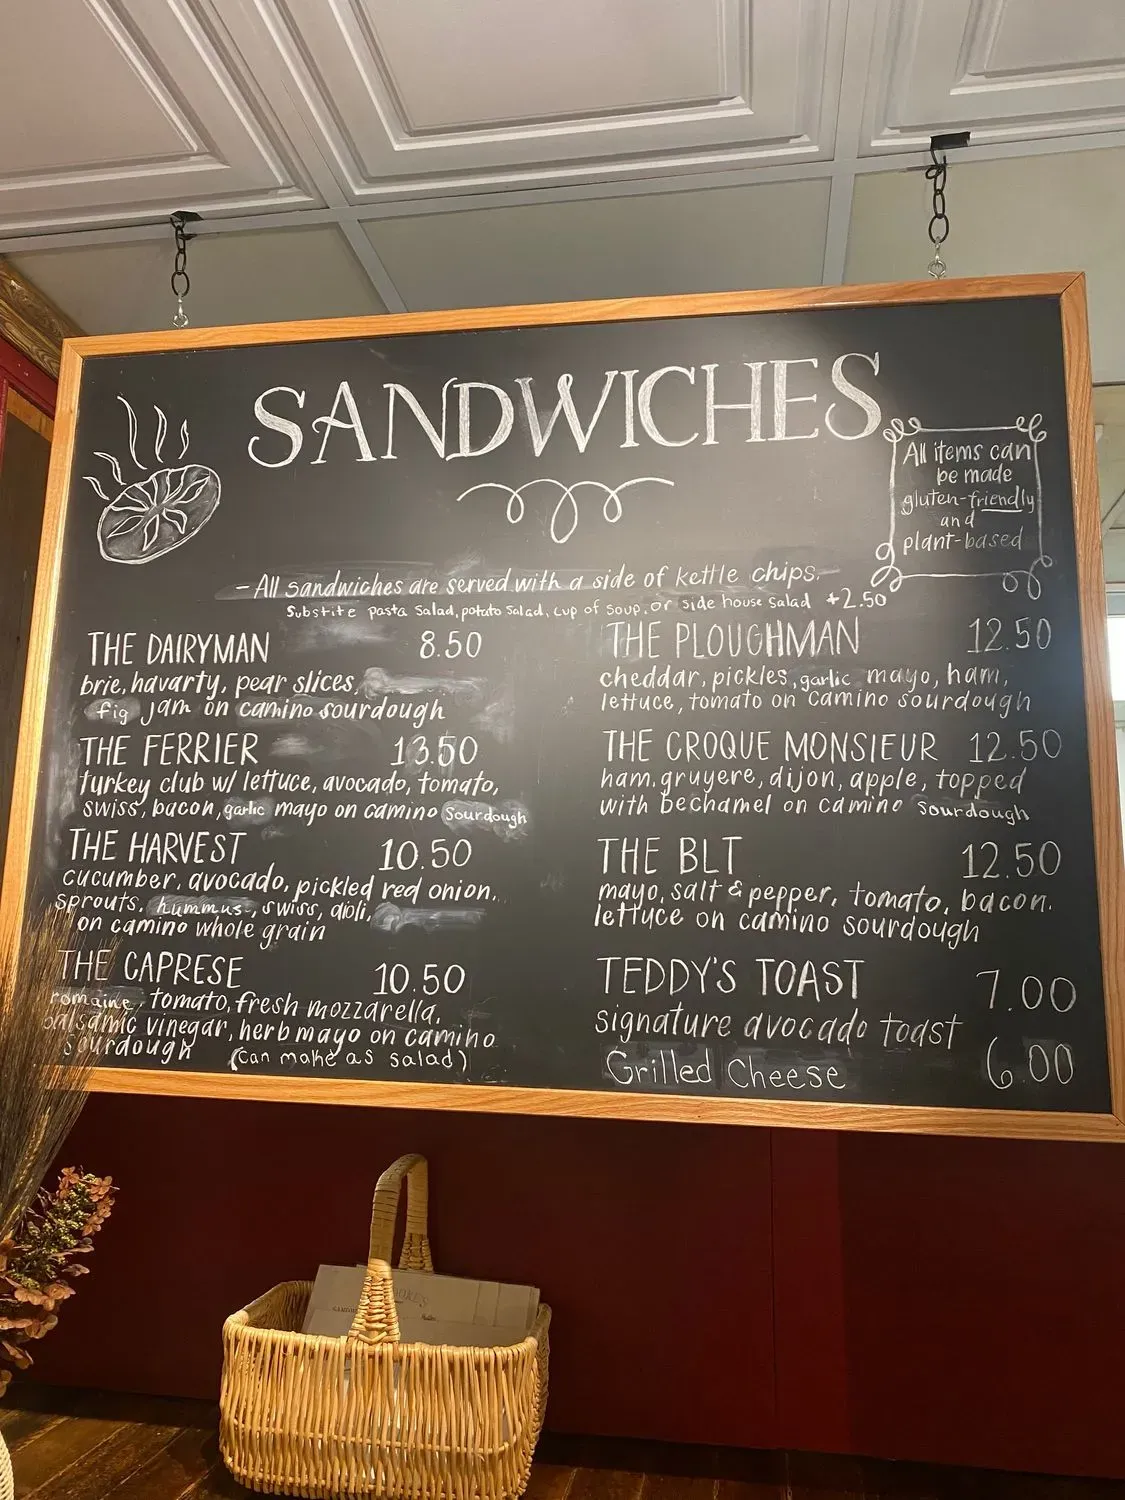 SANDWICHES
All items can
be made
gluten-friendly
and
plant-based
- All sandwiches are served with a side of kettle chips.
Substite pasta salad, potato salad, cup of soup, or side house salad +2.50
THE DAIRYMAN 8.50
brie, havarty, pear slices,
fig jam on camino sourdough
THE FERRIER 13.50
turkey club w/ lettuce, avocado, tomato,
swiss, bacon, garlic mayo on camino sourdough
THE HARVEST 10.50
cucumber, avocado, pickled red onion,
sprouts, hummus, swiss, aioli,
on camino whole grain
THE CAPRESE 10.50
romaine, tomato, fresh mozzarella,
balsamic vinegar, herb mayo on camino
sourdough (can make as salad)
THE PLOUGHMAN 12.50
cheddar, pickles, garlic mayo, ham,
lettuce, tomato on camino sourdough
THE CROQUE MONSIEUR 12.50
ham, gruyere, dijon, apple, topped
with bechamel on camino sourdough
THE BLT 12.50
mayo, salt & pepper, tomato, bacon,
lettuce on camino sourdough
TEDDY'S TOAST 7.00
signature avocado toast
Grilled Cheese 6.00